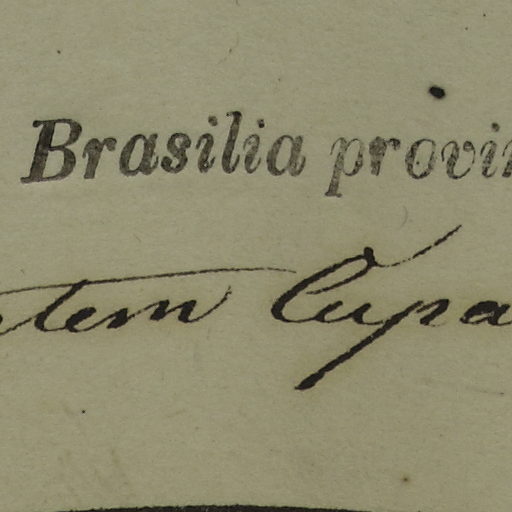 Brasilia provin
tem Cupa